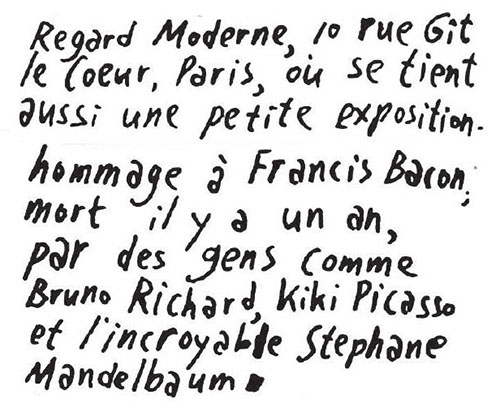 Regard Moderne, 10 rue Gît
le Coeur, Paris, où se tient
aussi une petite exposition.
hommage à Francis Bacon,
mort il y a un an,
par des gens comme
Bruno Richard, Kiki Picasso
et l'incroyable Stephane
Mandelbaum.